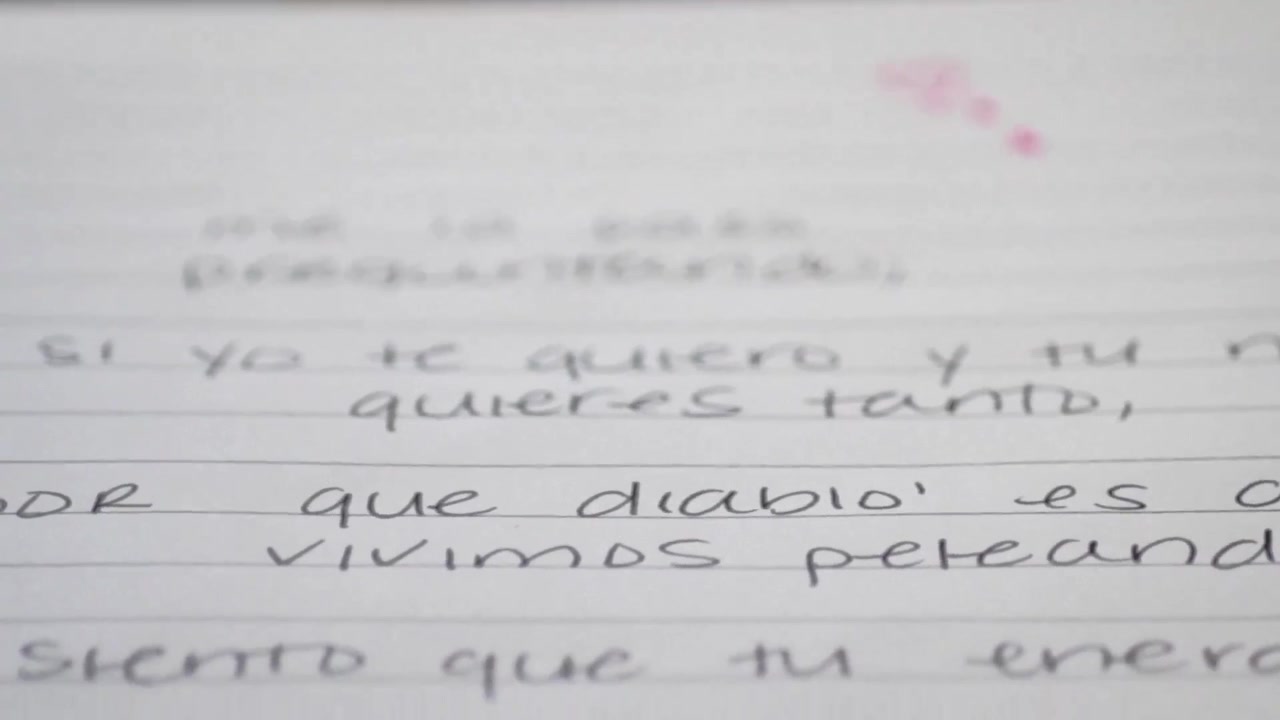 preguntando,
si yo te quiero y tu n
quieres tanto,
por que diablo' es q
vivimos peleand
siento que tu energ